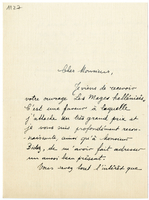 Cher Monsieur,
Je viens de recevoir
votre ouvrage les Mages hellénisés.
C'est une faveur à laquelle
j'attache un très grand prix et
je vous suis profondément recon-
naissante, ainsi qu'à Monsieur
Bidez, de m'avoir fait adresser
un aussi beau présent.
Vous avez tout l'intérêt que